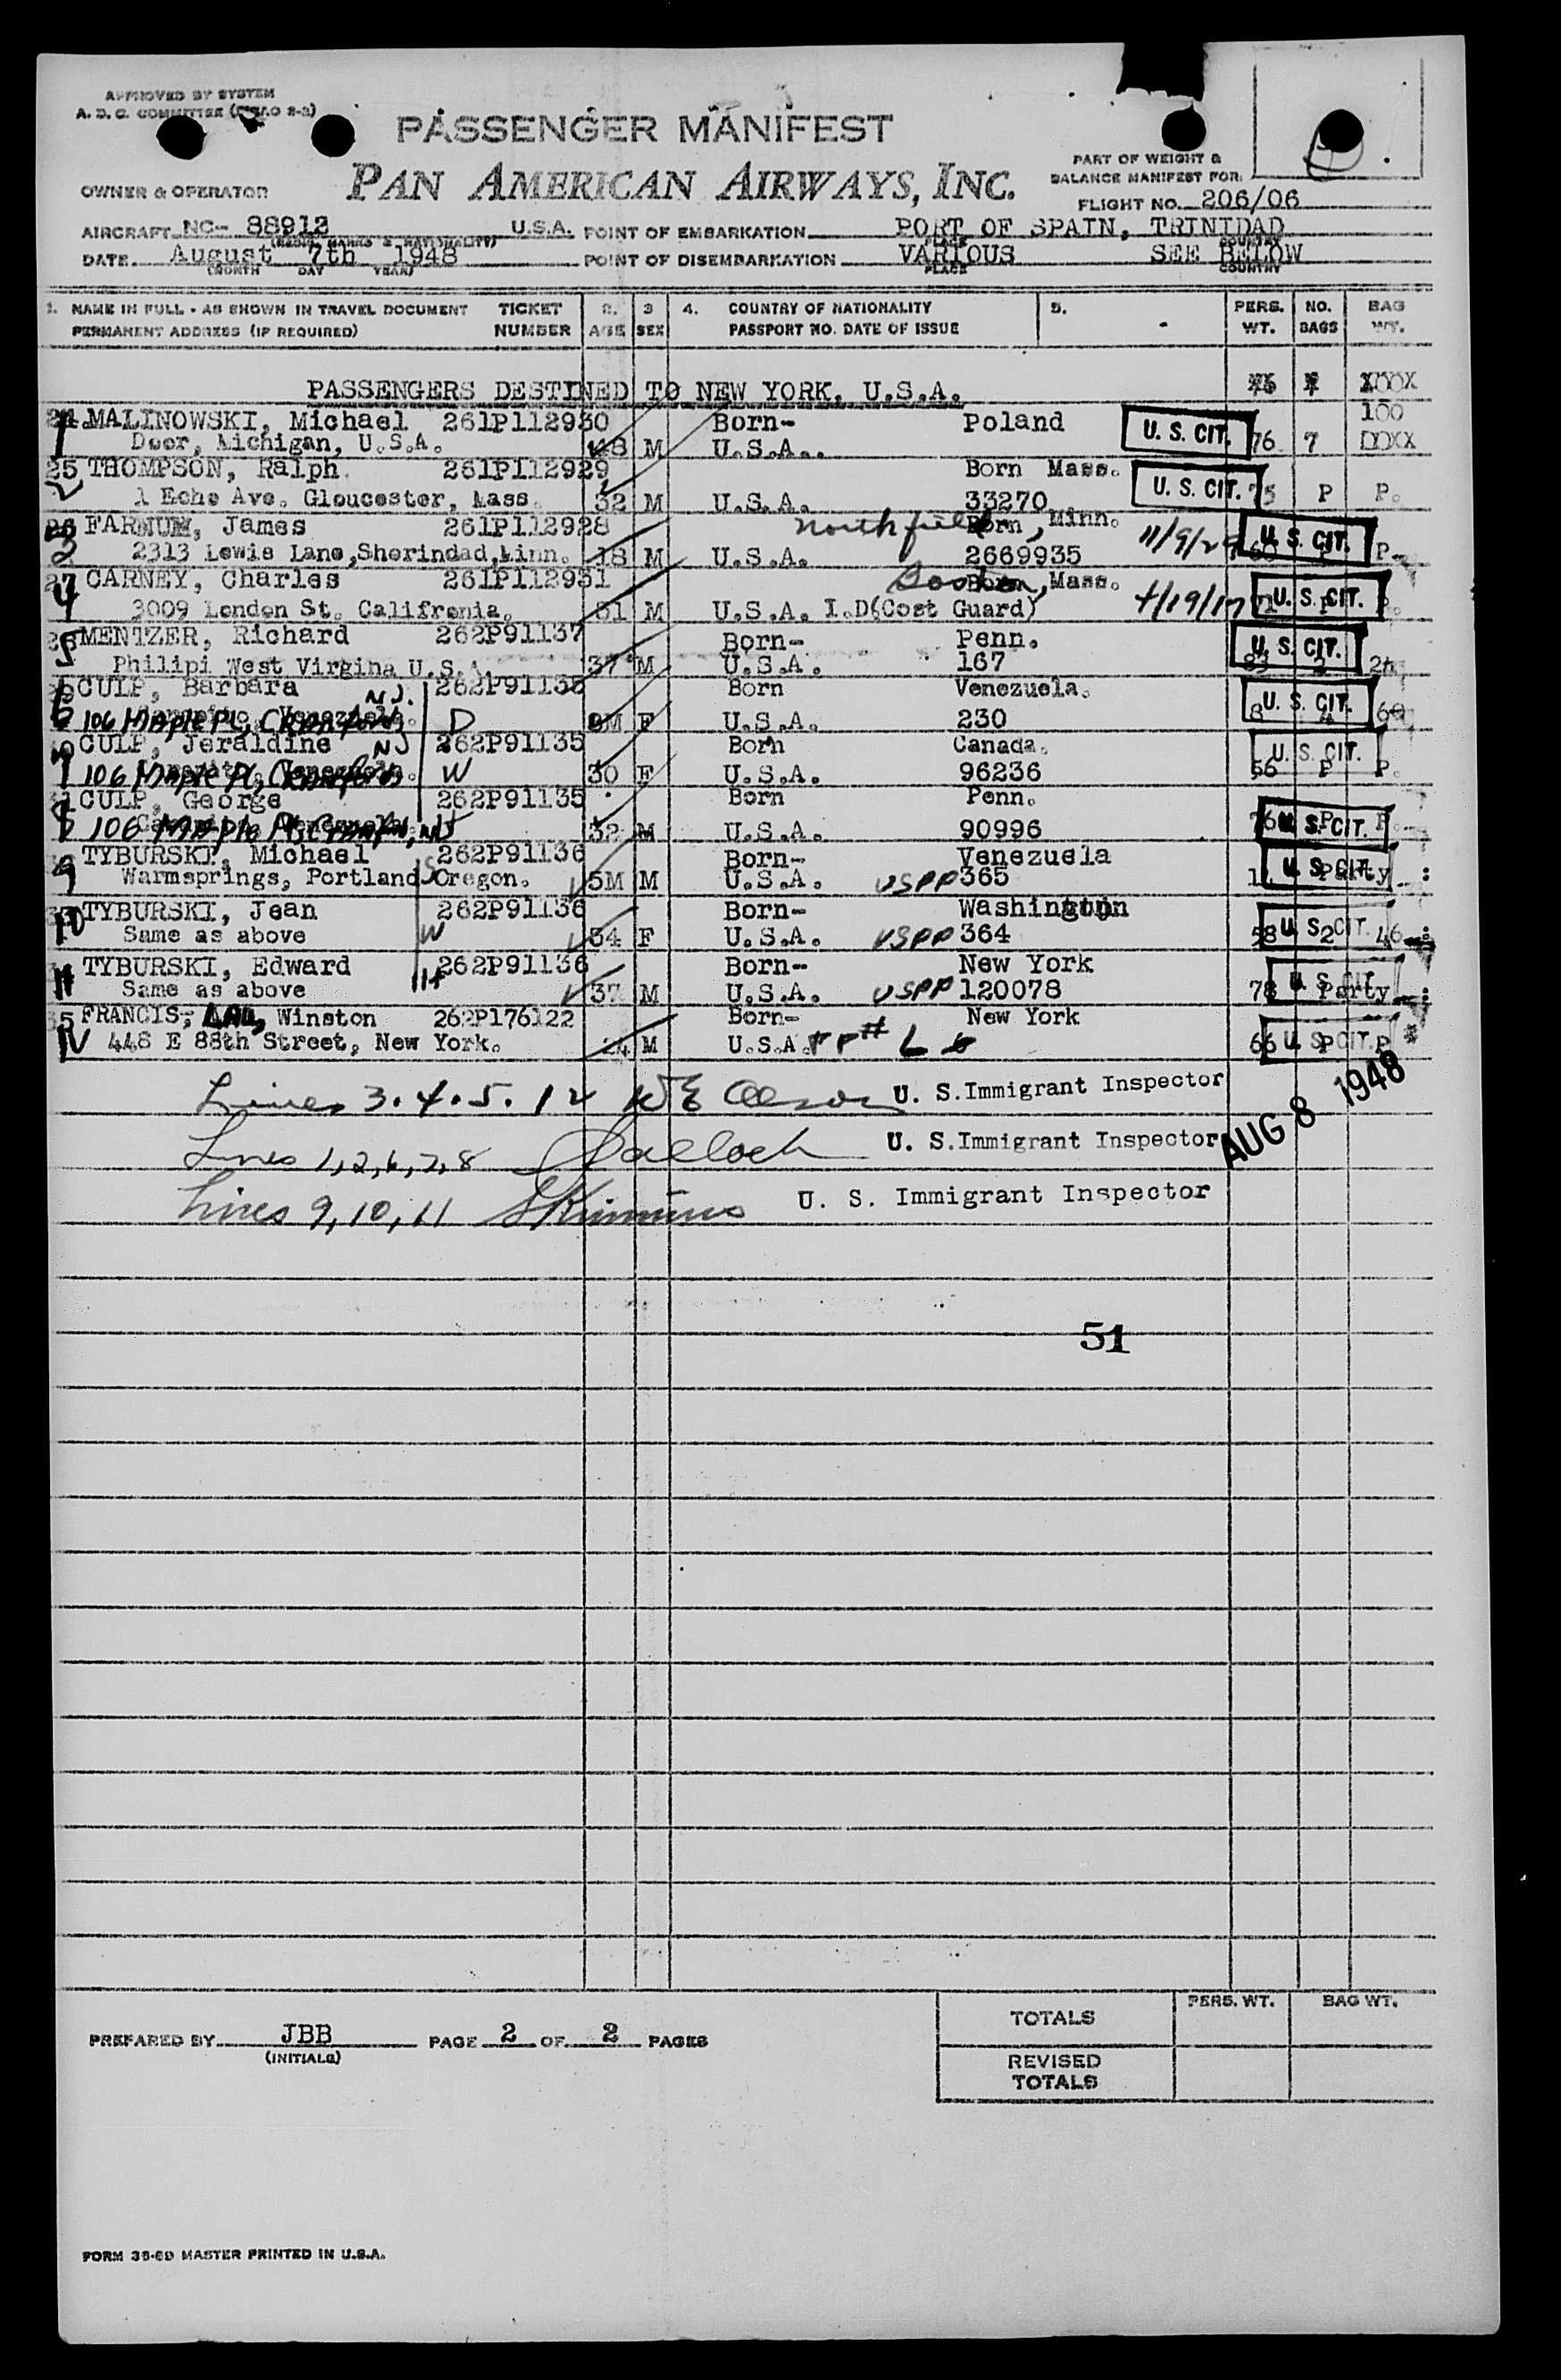 APPROVED BY SYSTEM
A. D. C. COMMITTEE
PASSENGER MANIFEST
PAN AMERICAN AIRWAYS, INC.
OWNER & OPERATOR
PART OF WEIGHT &
BALANCE MANIFEST FOR
FLIGHT NO. 206/06
AIRCRAFT NC- 88912 U.S.A. POINT OF EMBARKATION PORT OF SPAIN, TRINIDAD
DATE August 7th 1948 POINT OF DISEMBARKATION VARIOUS SEE BELOW
(MONTH DAY YEAR) PLACE COUNTRY
1. NAME IN FULL - AS SHOWN IN TRAVEL DOCUMENT TICKET 2. 3 4. COUNTRY OF NATIONALITY 5. PERS. NO. BAG
PERMANENT ADDRESS (IF REQUIRED) NUMBER AGE SEX PASSPORT NO. DATE OF ISSUE WT. BAGS WT.
PASSENGERS DESTINED TO NEW YORK, U.S.A.
100
24. MALINOWSKI, Michael 261P112930 Born- Poland U. S. CIT.
1 Door, Michigan, U.S.A. 48 M U.S.A.. 76 7
25 THOMPSON, Ralph. 261P112929 Born Mass. U. S. CIT.
2 1 Echo Ave. Gloucester, Mass. 32 M U.S.A. 33270 75 P P.
26 FARNUM, James 261P112928 Northfield Born, Minn. U. S. CIT.
3 2313 Lewis Lane,Sherindad,Minn. 18 M U.S.A. 2669935 11/9/29 P.
27 CARNEY, Charles 261P112931 Boston Born, Mass. U. S. CIT.
4 3009 London St. Califronia. 31 M U.S.A. I.D(Cost Guard) 4/19/17
MENTZER, Richard 262P91137 Born- Penn. U. S. CIT.
5 Philipi West Virgina U.S.A. 37 M U.S.A. 167 83 2
CULP, Barbara N.J. 262P91135 Born Venezuela. U. S. CIT.
6 106 Maple Pl, Cranford, D 9M F U.S.A. 230 8
CULP, Jeraldine NJ 262P91135 Born Canada. U. S. CIT.
7 106 Maple Pl, Cranford W 30 F U.S.A. 96236 56 P P.
CULP, George 262P91135 Born Penn. U. S. CIT.
8 106 Maple Pl, Cranford, NJ H 32 M U.S.A. 90996 76 P P.
TYBURSKI, Michael 262P91136 Born- Venezuela U. S. CIT.
9 Warmsprings, Portland Oregon. S 5M M U.S.A. USPP 365 Party
TYBURSKI, Jean 262P91136 Born- Washington U. S. CIT.
10 Same as above W 34 F U.S.A. USPP 364 58 2 46
TYBURSKI, Edward 262P91136 Born- New York U. S. CIT.
11 Same as above H 37 M U.S.A. USPP 120078 78 Party
35 FRANCIS, Winston 262P176122 Born- New York U. S. CIT.
12 448 E 88th Street, New York. 24 M U.S.A. 66 P P
Lines 3.4.5.12 U. S.Immigrant Inspector
AUG 8 1948
Lines 1,2,6,7,8 U. S.Immigrant Inspector
Lines 9,10,11 U. S. Immigrant Inspector
51
PREPARED BY JBB PAGE 2 OF 2 PAGES
(INITIALS)
TOTALS PERS. WT. BAG WT.
REVISED
TOTALS
FORM 36-69 MASTER PRINTED IN U.S.A.